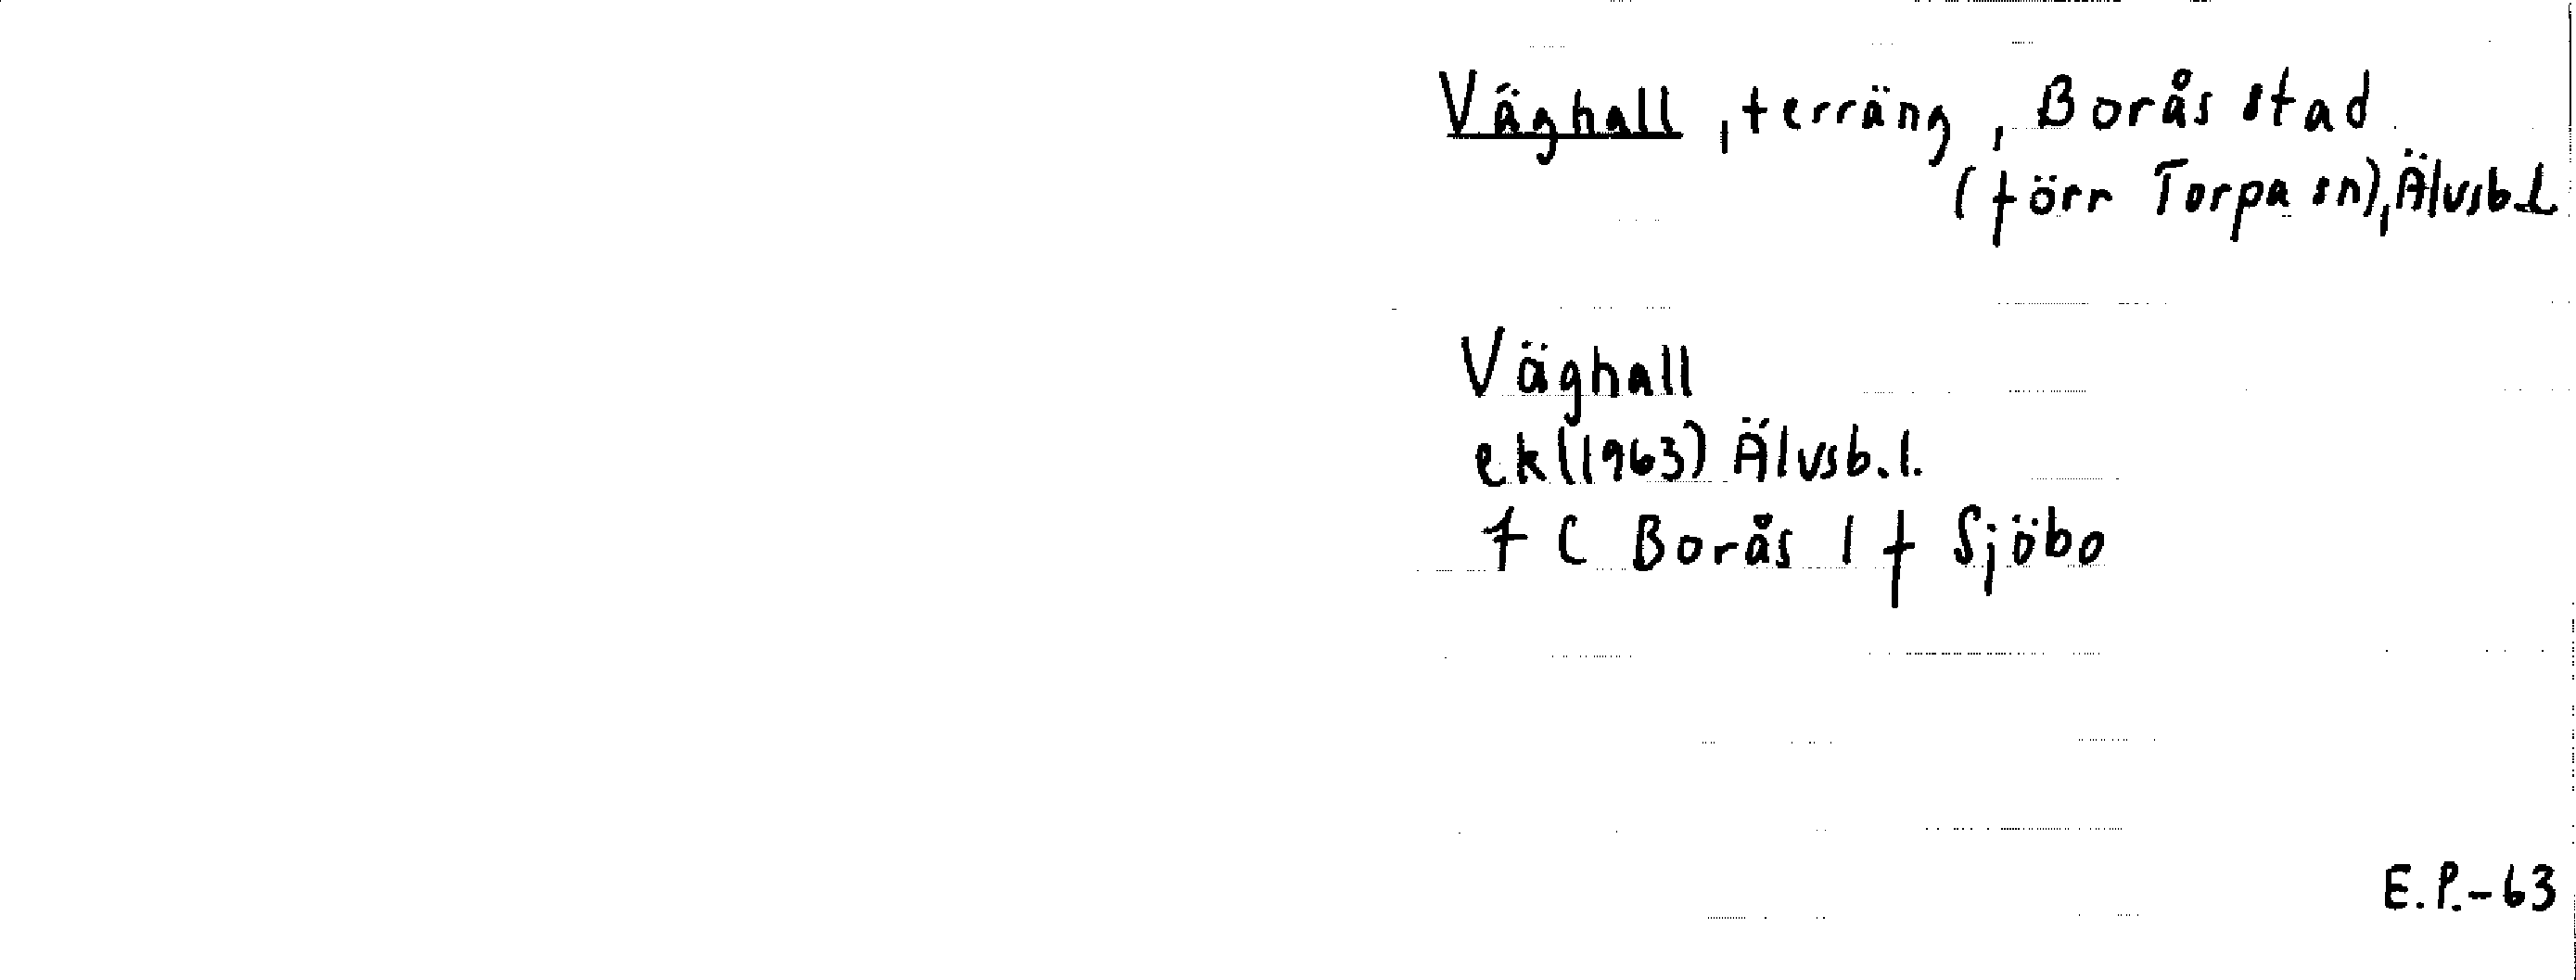 Väghall, terräng, Borås stad
(förr Torpa sn), Älvsb. l
Väghall
ek (1963) Älvsb. l.
7 C Borås 1 f Sjöbo
E.P.-63